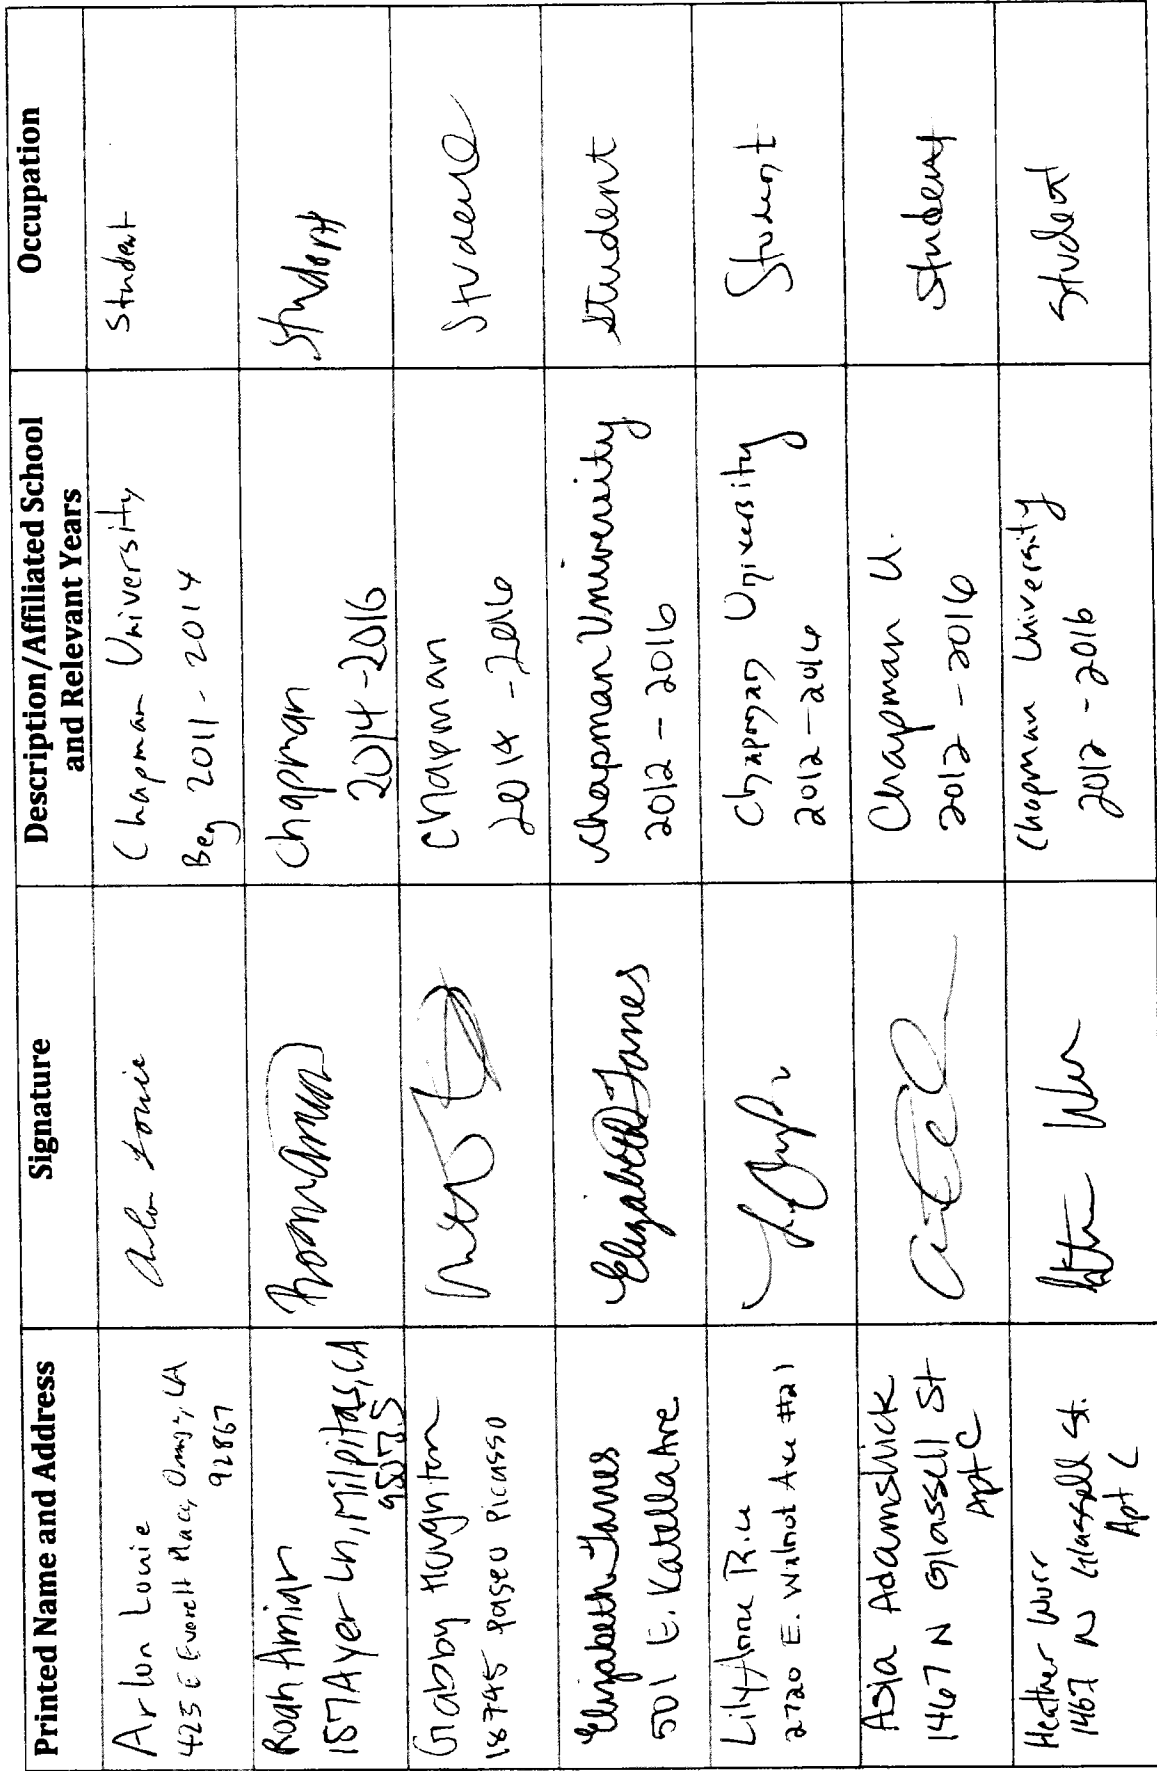 Printed Name and Address
Signature
Description/Affiliated School
and Relevant Years
Occupation
Arlon Louie
423 E Everett Place, Orange, CA
92867
Arlon Louie
Chapman University
Beg 2011 - 2014
Student
Roan Amian
157 Ayer Ln, Milpitas, CA
Chapman
2014 - 2016
Student
Gabby Houghton
18745 Paseo Picasso
Chapman
2014 - 2016
Student
Elizabeth Janes
501 E. Katella Ave
Elizabeth Janes
Chapman University
2012 - 2016
Student
LilyAnne Rice
2720 E. Walnot Ave #21
Chapman University
2012 - 2016
Student
Asia Adamshick
1467 N Glassell St
Apt C
Chapman U.
2012 - 2016
Student
Heather Wurr
1467 N Glassell St.
Apt C
Chapman University
2012 - 2016
Student